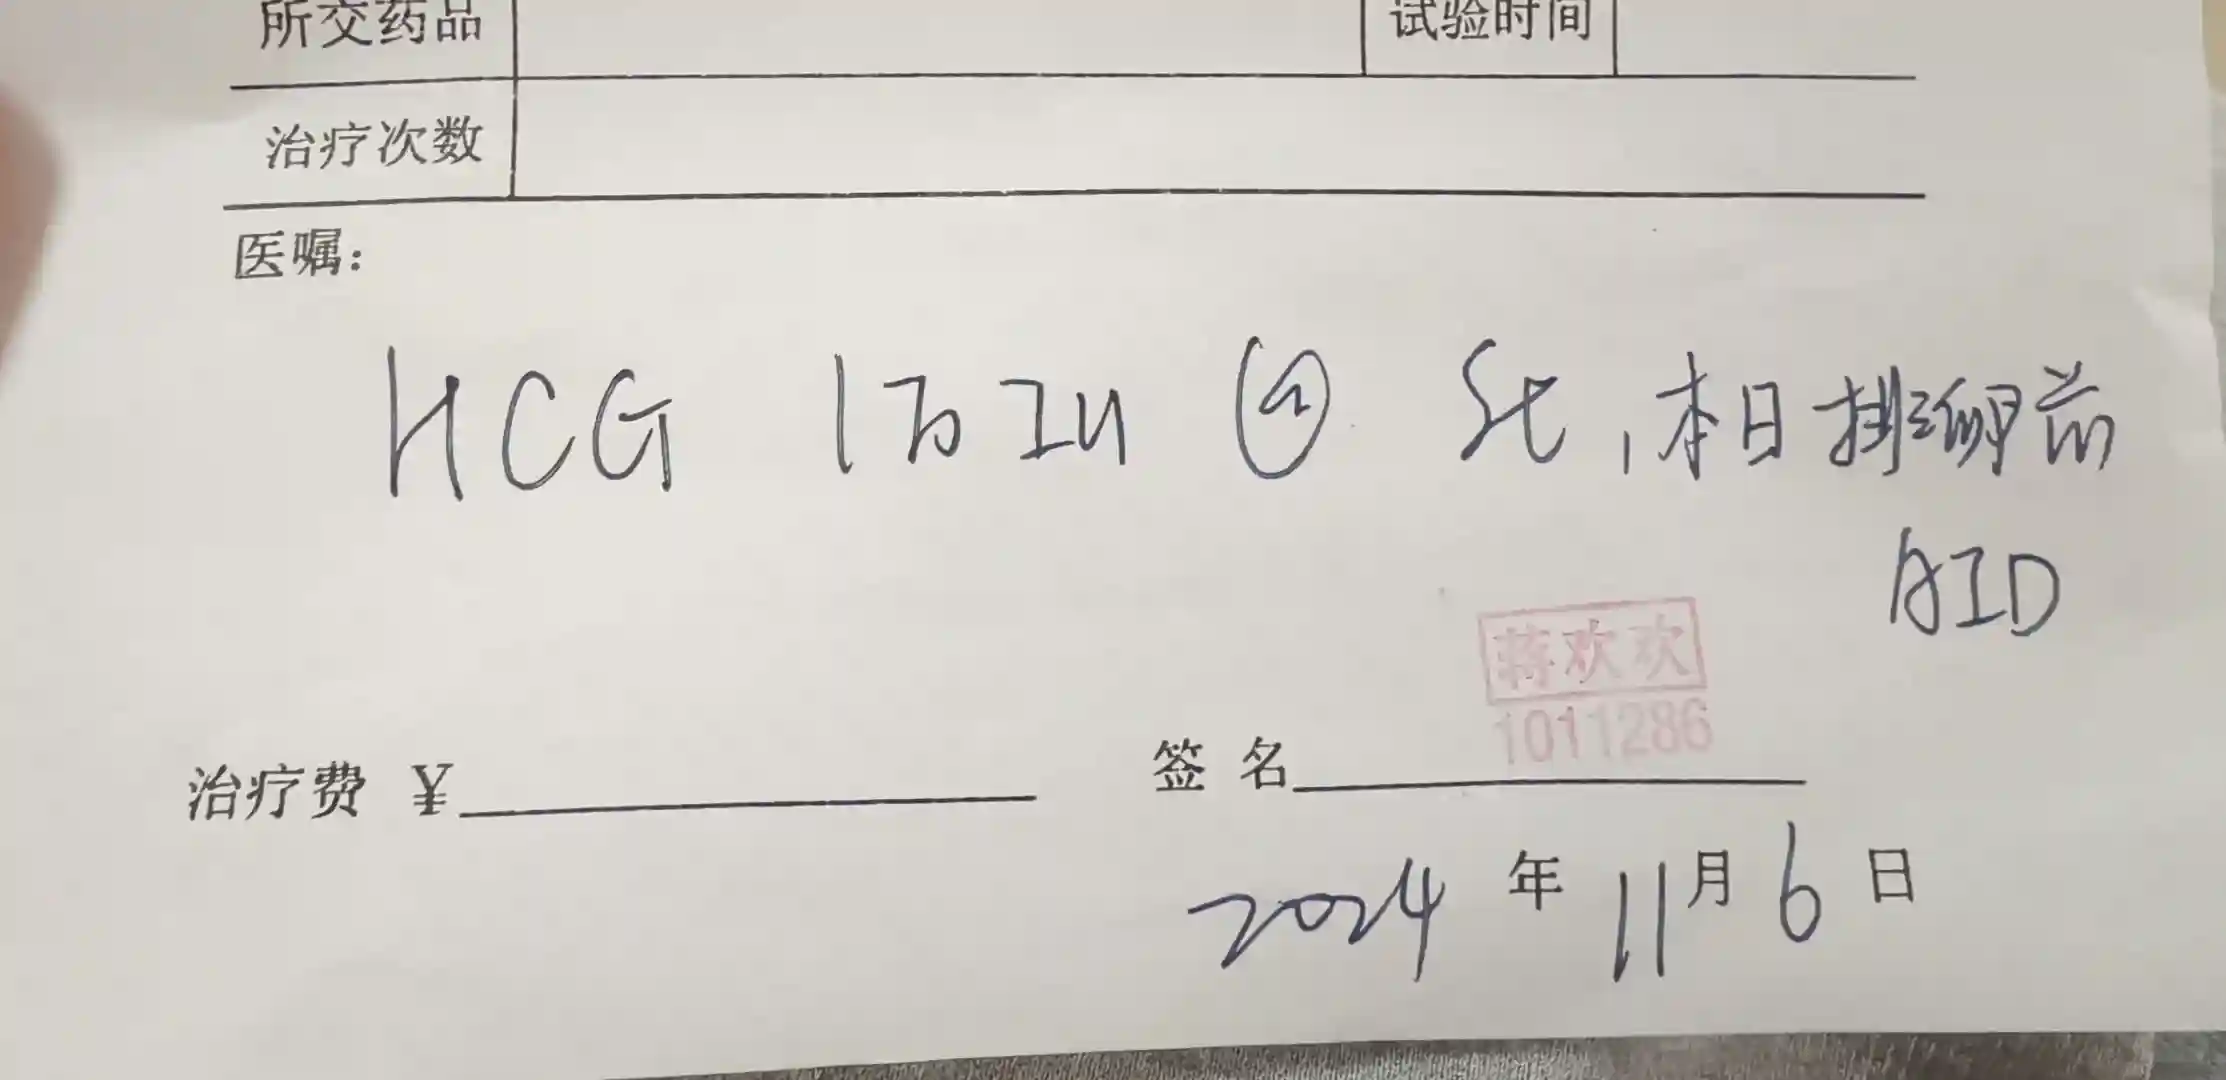 所交药品 试验时间
治疗次数
医嘱：
HCG 1万IU St，本日排卵前
AID
蒋欢欢
1011286
治疗费 ¥ 签名
2024年11月6日